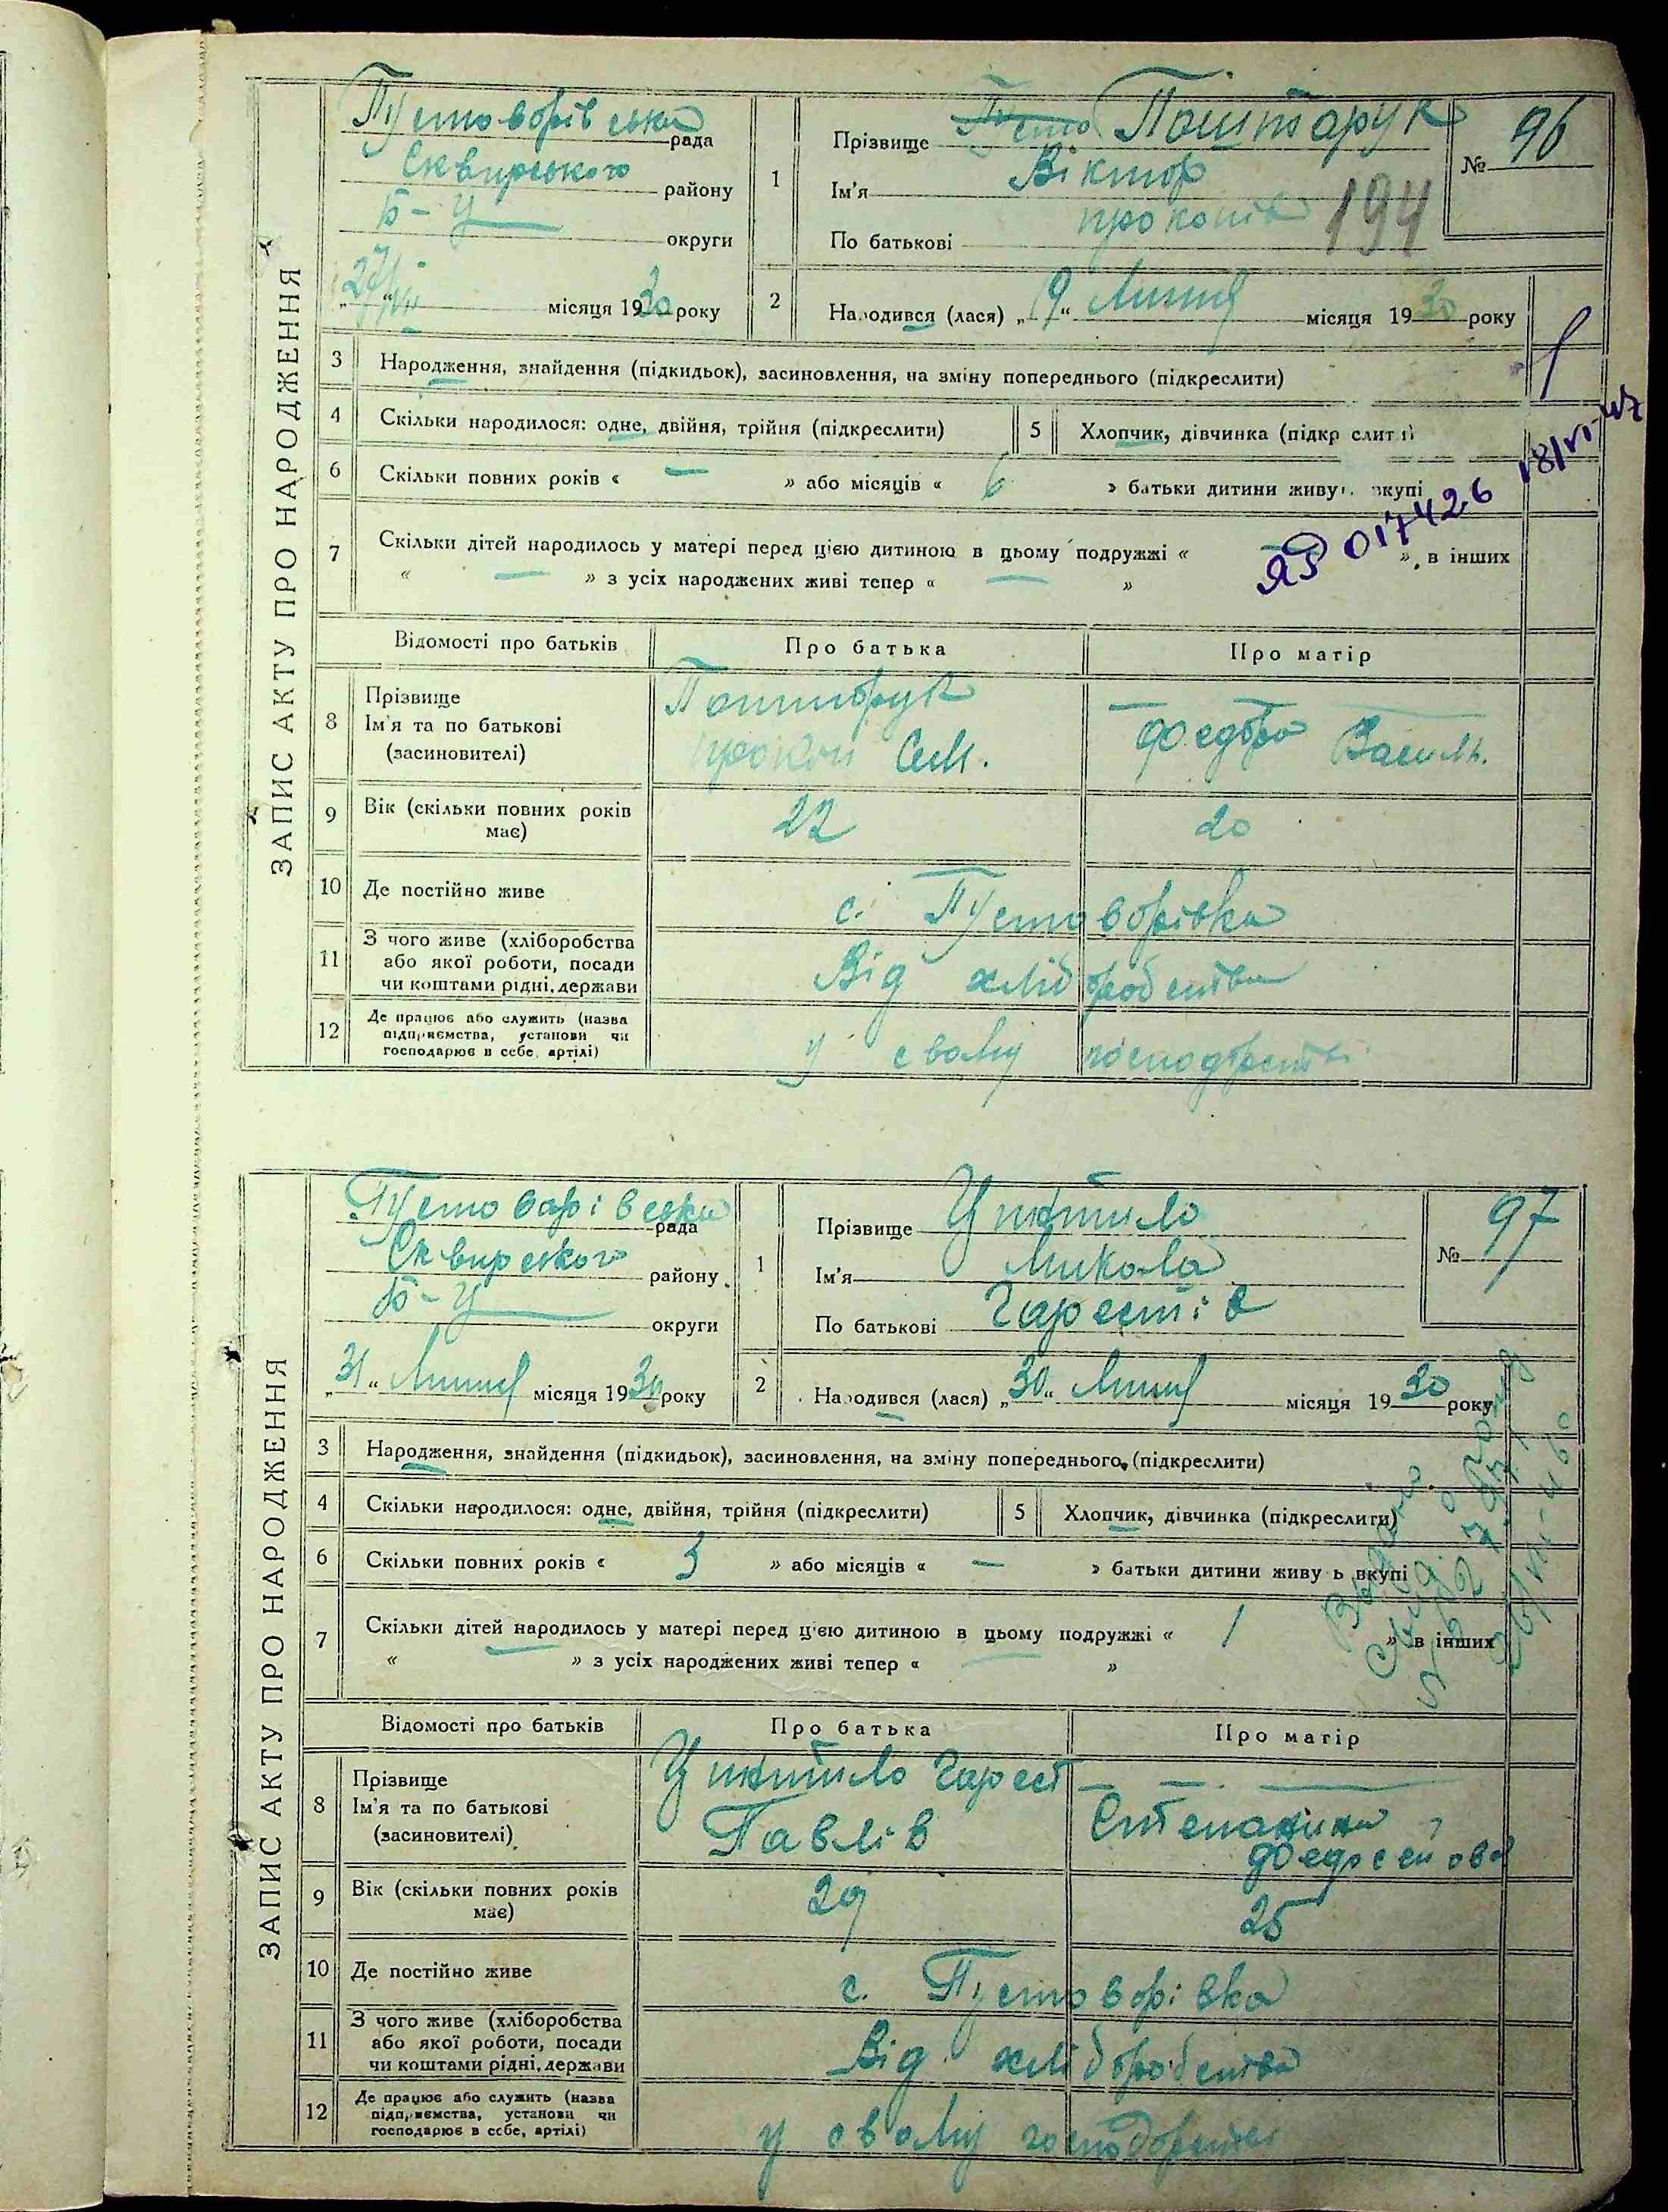 ЗАПИС АКТУ ПРО НАРОДЖЕННЯ
Пустоварівська рада
Сквирського району
Б-Ц округи
27/VII місяця 1930 року
1
Прізвище Пусто Поштарук
Ім'я Віктор
По батькові Прокопів 194
№ 96
2
Народився (лася) „9“ Липня місяця 1930 року
3 Народження, знайдення (підкидьок), засиновлення, на зміну попереднього (підкреслити)
4 Скільки народилося: одне, двійня, трійня (підкреслити)
5 Хлопчик, дівчинка (підкр слит и)
6 Скільки повних років « — » або місяців « 6 » батьки дитини живу вкупі
ЯБ 017426 18/VI-47
7 Скільки дітей народилось у матері перед цією дитиною в цьому подружжі « — », в інших
« — » з усіх народжених живі тепер « — »
Відомості про батьків Про батька Про матір
8 Прізвище
Ім'я та по батькові
(засиновителі)
Поштарук
Прокоп Сем.
— Федора Василь.
9 Вік (скільки повних років має) 22 20
10 Де постійно живе с. Пустоварівка
11 З чого живе (хліборобства
або якої роботи, посади
чи коштами рідні, держави
Від хліборобства
12 Де працює або служить (назва
підприємства, установи чи
господарює в себе, артілі)
у свому господарстві
ЗАПИС АКТУ ПРО НАРОДЖЕННЯ
Пустоварівська рада
Сквирського району
Б-Ц округи
„31“ Липня місяця 1930 року
1
Прізвище
Ім'я Микола
По батькові
№ 97
2
Народився (лася) „30“ Липня місяця 1930 року
3 Народження, знайдення (підкидьок), засиновлення, на зміну попереднього (підкреслити)
4 Скільки народилося: одне, двійня, трійня (підкреслити)
5 Хлопчик, дівчинка (підкреслити)
6 Скільки повних років « 3 » або місяців « — » батьки дитини живу ь вкупі
7 Скільки дітей народилось у матері перед цією дитиною в цьому подружжі « 1 » в інших
« — » з усіх народжених живі тепер « — »
Відомості про батьків Про батька Про матір
8 Прізвище
Ім'я та по батькові
(засиновителі)
Павлів
— — —
Степанина
9 Вік (скільки повних років має) 29 25
10 Де постійно живе с. Пустоварівка
11 З чого живе (хліборобства
або якої роботи, посади
чи коштами рідні, держави
Від хліборобства
12 Де працює або служить (назва
підприємства, установи чи
господарює в себе, артілі)
у свому господарстві